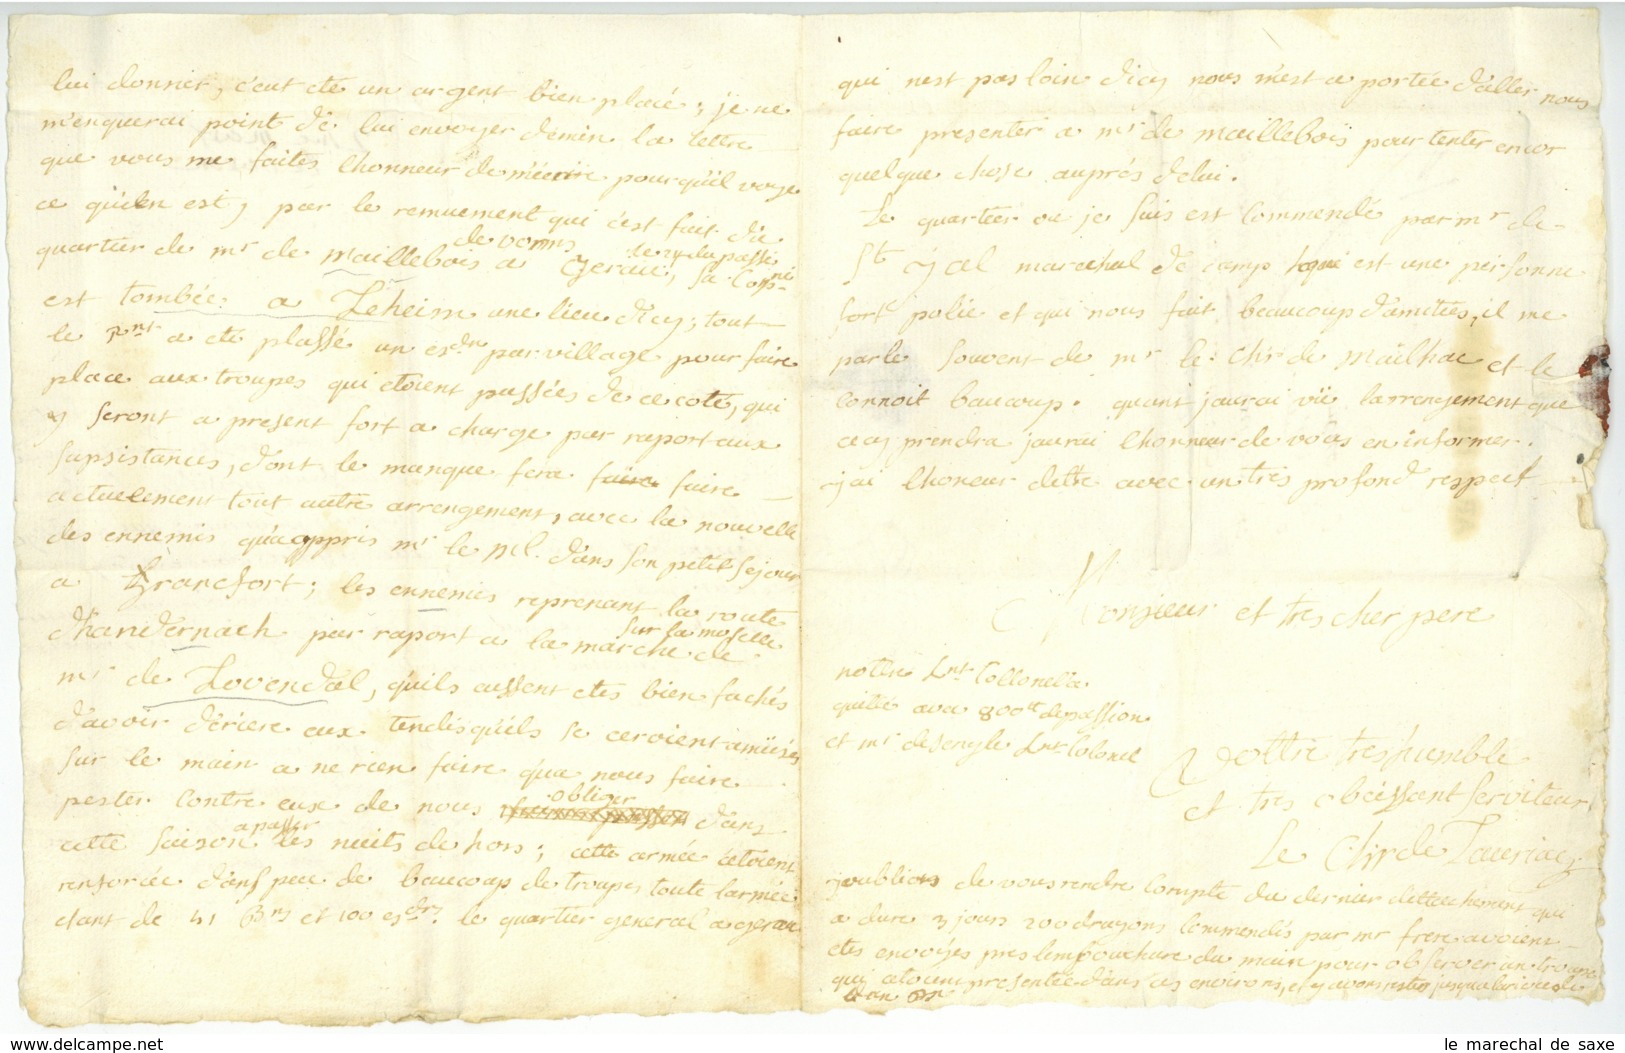 lui donner, c'eut eté un argent bien placé; je ne
m'enquerai point de lui envoyer demin la lettre
que vous me faites lhonneur de m'écrire pour qu'il voye
ce qu'il en est, par le remuement qui c'est fait du
quartier de mr de maillebois de vorms a Gerau, le 24 du passé sa Compnie
est tombée a Leheim une lieu d'icy; tout
le Rnt a eté plassé un esdn par village pour faire
place aux troupes qui etoient passées de ce coté, qui
y seront a present fort a charge par raport aux
supsistances, dont le manque fera faire faire
actuelement tout autre arrengement, avec la nouvelle
des ennemis qu'a appris mr le ml. dans son petit sejour
a francfort; les ennemis reprenant la route
d'handernach par raport a la marche sur la moselle de
mr de Lovendal, qu'ils eussent etes bien fachés
d'avoir dériere eux tendis qu'ils se ceroient amüsés
sur le main a ne rien faire qua nous faire
pester contre eux de nous obliger dans
cette saison a passer les nuits de hors; cette armée cetoient
renforcée dans peu de beaucoup de troupes toute larmée
etant de 41 Bns et 100 esdns. le quartier general a gerau
qui nest pas loin d'icy nous mest a portée d'aller nous
faire presenter a mr de maillebois pour tenter encor
quelque chose auprés de lui.
Le quartier ou je suis est commendé par mr de
St ycel marechal de camp qui est une personne
fort polie et qui nous fait beaucoup d'amitiés, il me
parle souvent de mr le chr de mailhac et le
connoit beaucoup. quant jaurai vü larrengement que
cecy prendra jaurai lhonneur de vous en informer.
jai lhoneur detre avec un tres profond respect
Monsieur et tres cher pere
nottre Lnt Collonel a
quitté avec 800tt de passion
et mr de Lnt Colonel
Vottre tres humble
et tres obeissant serviteur
Le Chr de Lauriac
j'oubliois de vous rendre compte du dernier dettachement qui
a duré 3 jours 200 dragons commendés par mr frere avoient
etes envoyés pres lembouchure du main pour observer un troupe
qui cetoient presentée dans ces environs, et y avons restés jusqua larivée de
le marechal de saxe